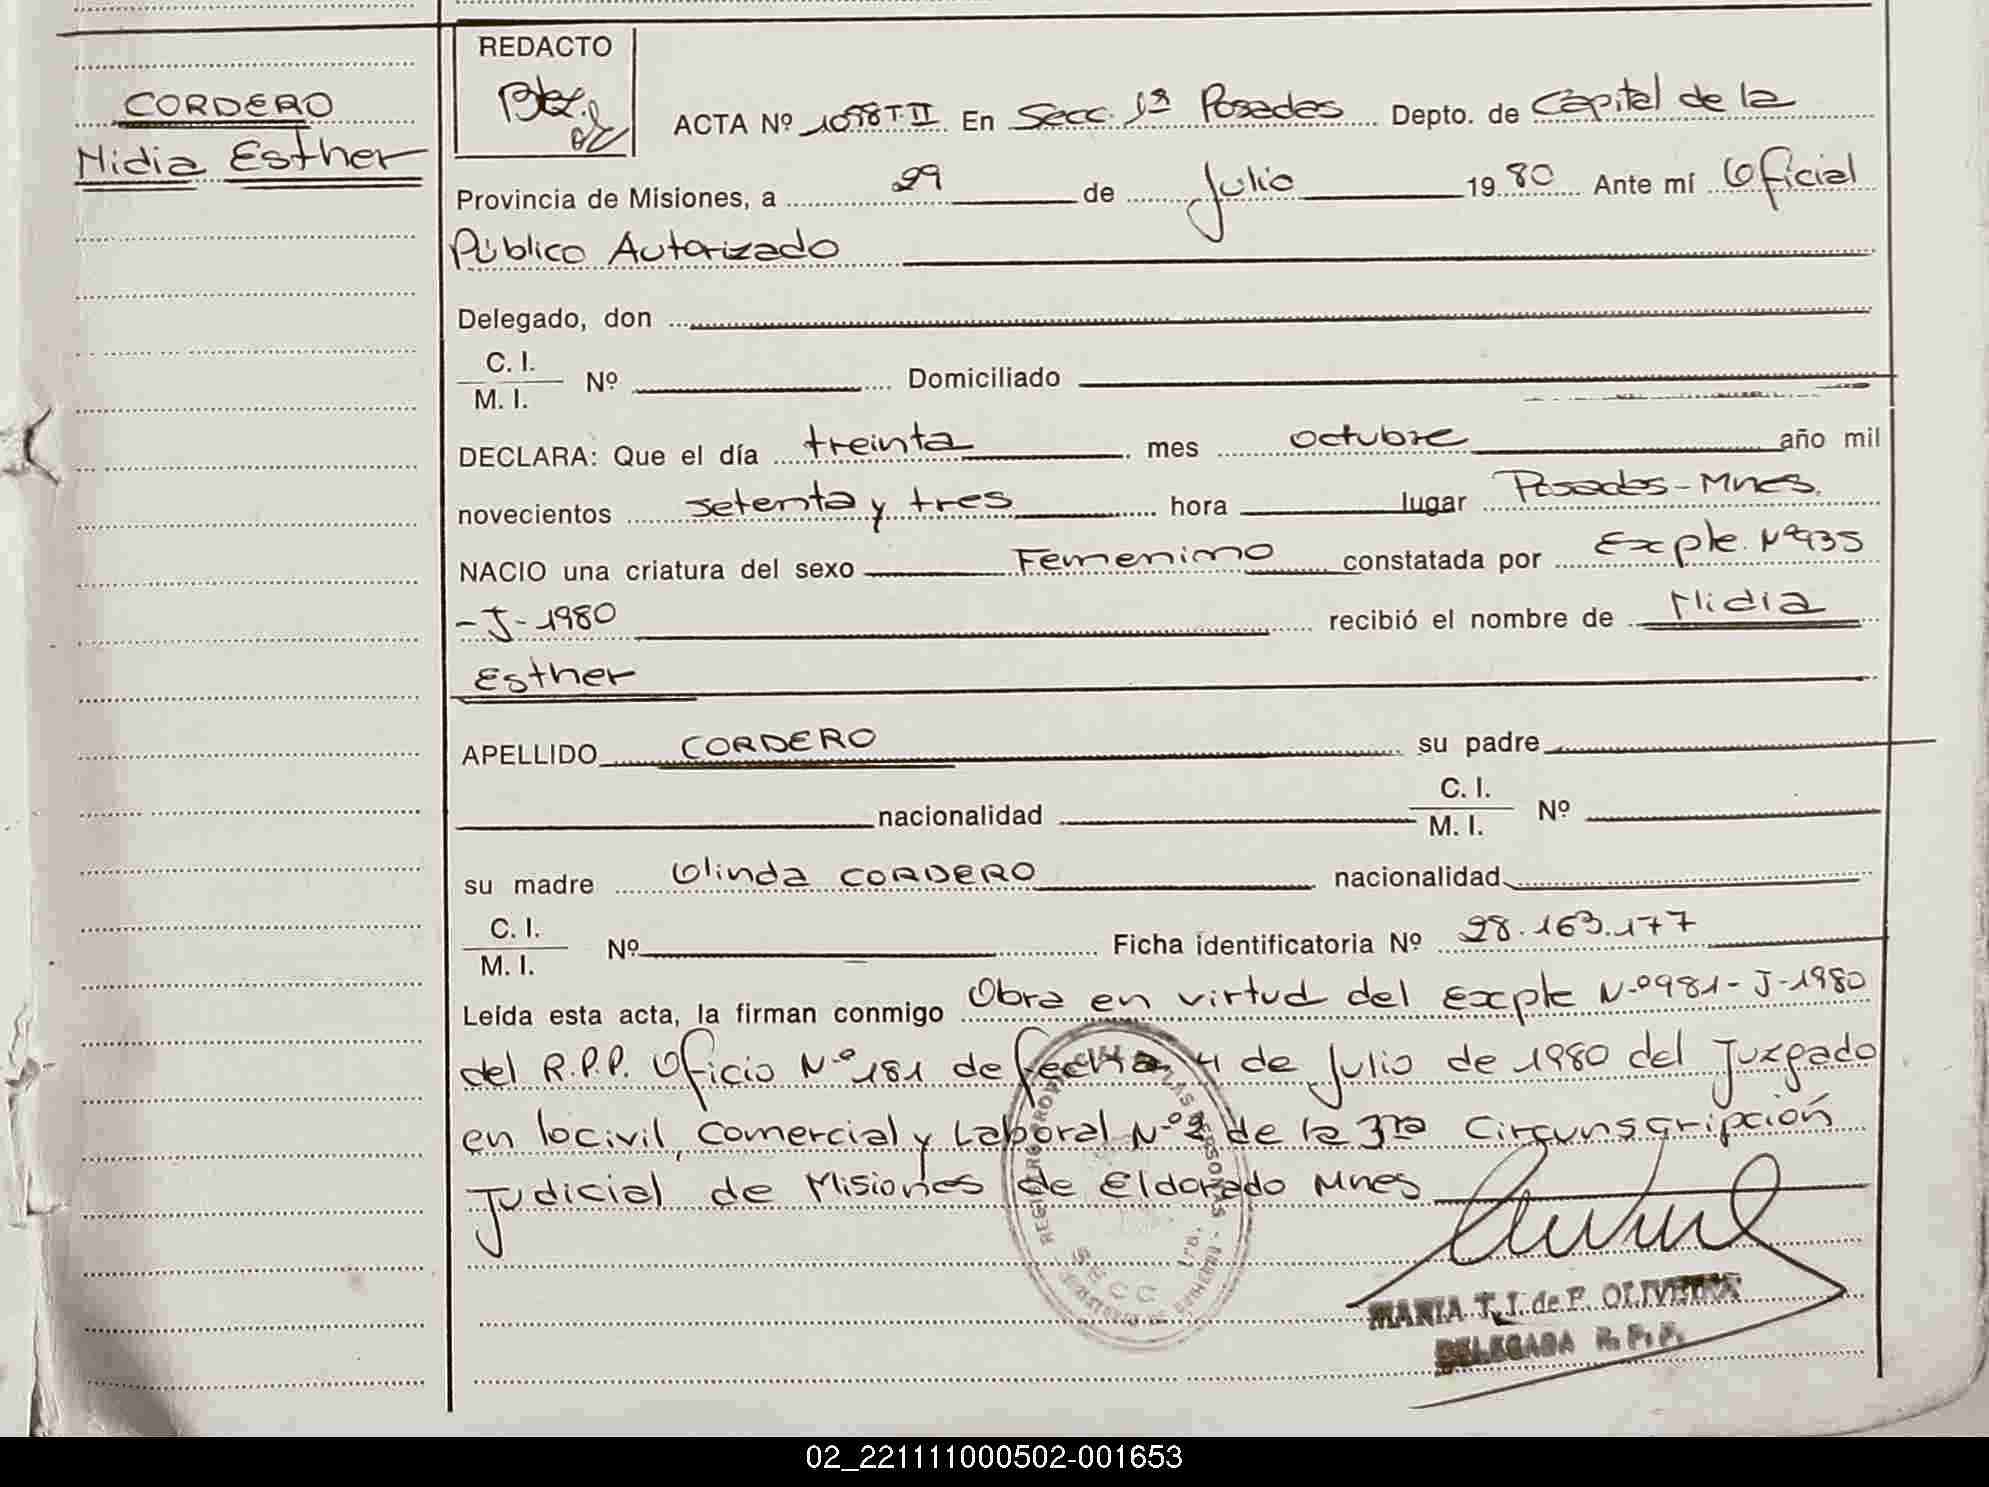 CORDERO
Nidia Esther
REDACTO
ACTA Nº 1098 T.II En Secc. 1ª Posadas Depto. de Capital de la
Provincia de Misiones, a 29 de Julio 1980 Ante mí Oficial
Público Autorizado
Delegado, don
C. I.
M. I. Nº Domiciliado
DECLARA: Que el día treinta mes octubre año mil
novecientos setenta y tres hora lugar Posadas-Mnes.
NACIO una criatura del sexo Femenino constatada por Expte. Nº
-J-1980 recibió el nombre de Nidia
Esther
APELLIDO CORDERO su padre
nacionalidad C. I.
M. I. Nº
su madre Olinda CORDERO nacionalidad
C. I.
M. I. Nº Ficha identificatoria Nº 28.163.177
Leída esta acta, la firman conmigo Obra en virtud del Expte Nº981-J-1980
del R.P.P. Oficio Nº181 de fecha 4 de Julio de 1980 del Juzgado
en locivil, Comercial y Laboral Nº2 de la 3ra Circunsgripción
Judicial de Misiones de Eldorado Mnes
SECC. 1ra.
MARIA T. J. de F. OLIVEIRA
DELEGADA R. P. P.
02_221111000502-001653